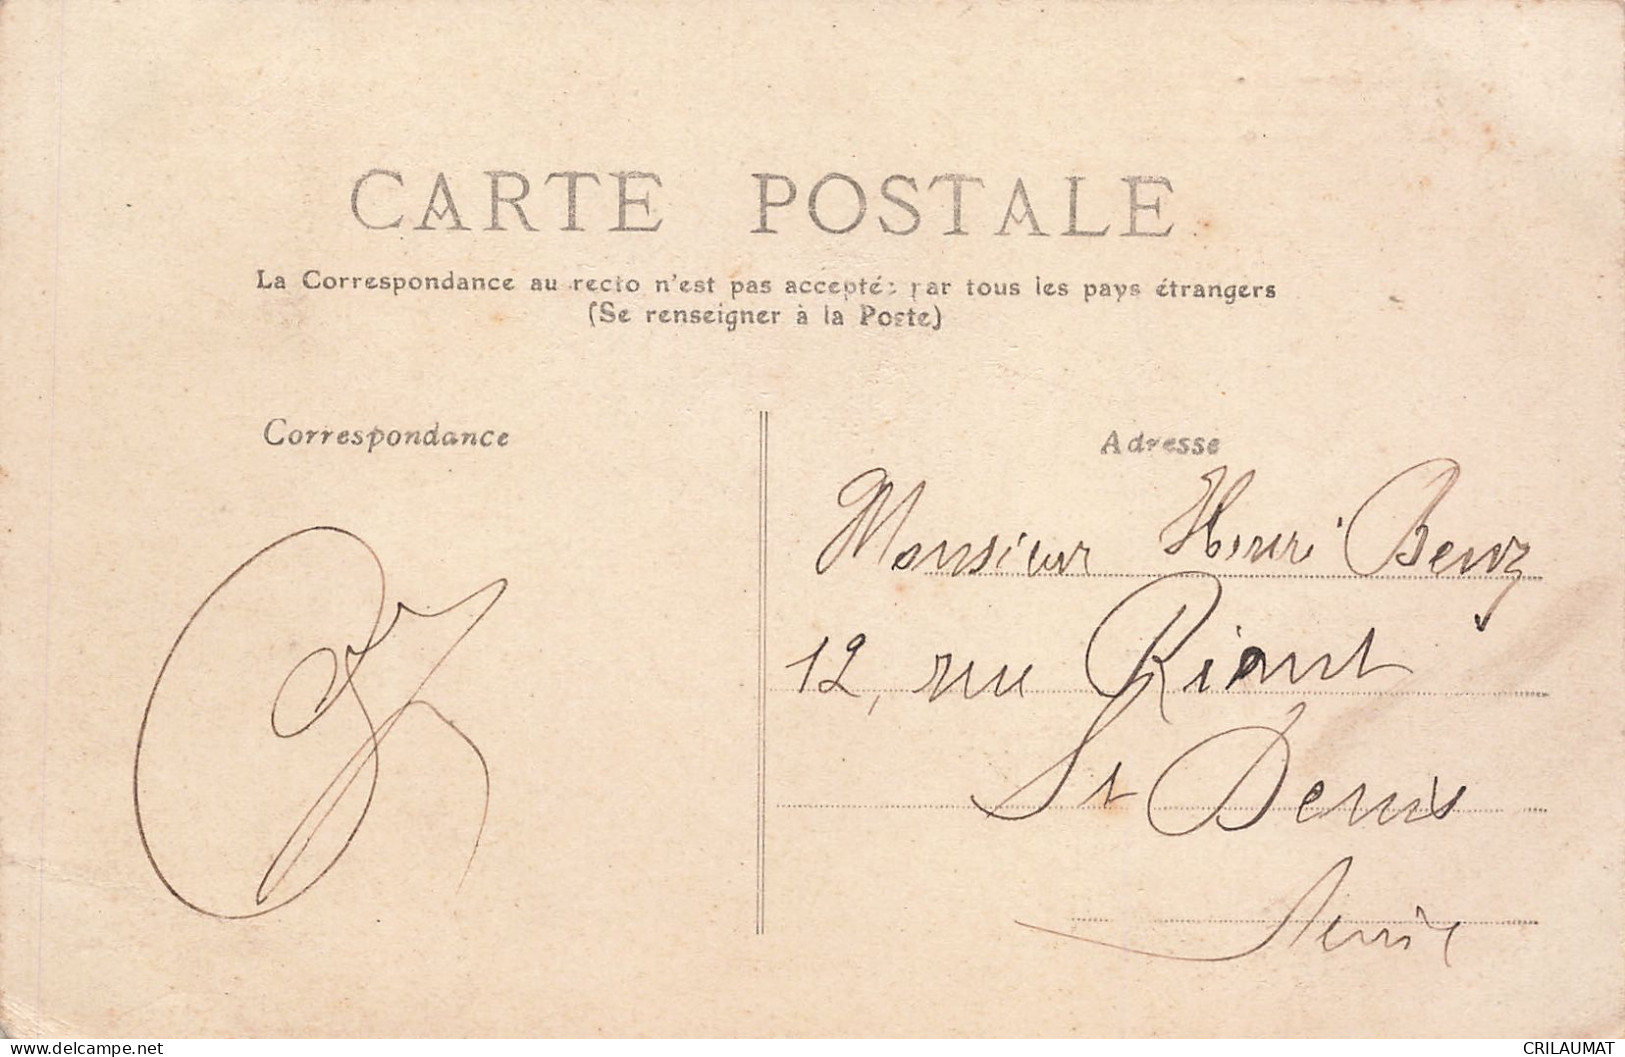 CARTE POSTALE
La Correspondance au recto n'est pas acceptée par tous les pays étrangers
(Se renseigner à la Poste)
Correspondance
Adresse
Monsieur Henri Benz
12, rue Riant
St Denis
Seine
delcampe.net
CRILAUMAT